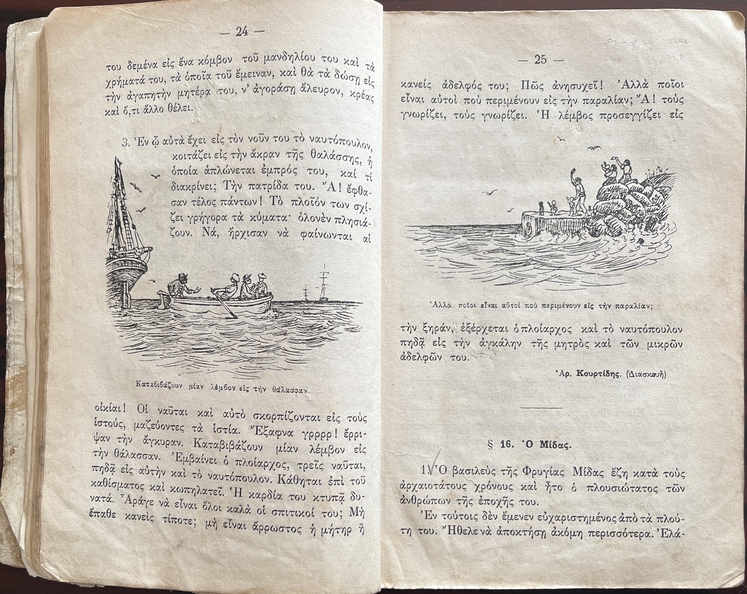 — 24 —
του δεμένα εἰς ἕνα κόμβον τοῦ μανδηλίου του καὶ τὰ
χρήματά του, τὰ ὁποῖα τοῦ ἔμειναν, καὶ θὰ τὰ δώσῃ εἰς
τὴν ἀγαπητὴν μητέρα του, ν' ἀγοράσῃ ἄλευρον, κρέας
καὶ ὅ,τι ἄλλο θέλει.
3. Ἐν ᾧ αὐτὰ ἔχει εἰς τὸν νοῦν του τὸ ναυτόπουλον,
κοιτάζει εἰς τὴν ἄκραν τῆς θαλάσσης, ἡ
ὁποία ἁπλώνεται ἐμπρός του, καὶ τί
διακρίνει; Τὴν πατρίδα του. Ἄ! ἔφθα-
σαν τέλος πάντων! Τὸ πλοῖόν των σχί-
ζει γρήγορα τὰ κύματα· ὁλονὲν πλησιά-
ζουν. Νά, ἤρχισαν νὰ φαίνωνται αἱ
Καταβιβάζουν μίαν λέμβον εἰς τὴν θάλασσαν.
οἰκίαι! Οἱ ναῦται καὶ αὐτὸ σκορπίζονται εἰς τοὺς
ἱστούς, μαζεύοντες τὰ ἱστία. Ἔξαφνα γρρρρ! ἔρρι-
ψαν τὴν ἄγκυραν. Καταβιβάζουν μίαν λέμβον εἰς
τὴν θάλασσαν. Ἐμβαίνει ὁ πλοίαρχος, τρεῖς ναῦται,
πηδᾷ εἰς αὐτὴν καὶ τὸ ναυτόπουλον. Κάθηται ἐπὶ τοῦ
καθίσματος καὶ κωπηλατεῖ. Ἡ καρδία του κτυπᾷ δυ-
νατά. Ἆράγε νὰ εἶναι ὅλοι καλὰ οἱ σπιτικοί του; Μὴ
ἔπαθε κανεὶς τίποτε; μὴ εἶναι ἄρρωστος ἡ μήτηρ ἢ
— 25 —
κανεὶς ἀδελφός του; Πῶς ἀνησυχεῖ! Ἀλλὰ ποῖοι
εἶναι αὐτοὶ ποὺ περιμένουν εἰς τὴν παραλίαν; Ἄ! τοὺς
γνωρίζει, τοὺς γνωρίζει. Ἡ λέμβος προσεγγίζει εἰς
Ἀλλὰ ποῖοι εἶναι αὐτοὶ ποὺ περιμένουν εἰς τὴν παραλίαν;
τὴν ξηράν, ἐξέρχεται ὁ πλοίαρχος καὶ τὸ ναυτόπουλον
πηδᾷ εἰς τὴν ἀγκάλην τῆς μητρὸς καὶ τῶν μικρῶν
ἀδελφῶν του.
Ἀρ. Κουρτίδης. (Διασκευὴ)
§ 16. Ὁ Μίδας.
1. Ὁ βασιλεὺς τῆς Φρυγίας Μίδας ἔζη κατὰ τοὺς
ἀρχαιοτάτους χρόνους καὶ ἦτο ὁ πλουσιώτατος τῶν
ἀνθρώπων τῆς ἐποχῆς του.
Ἐν τούτοις δὲν ἔμενεν εὐχαριστημένος ἀπὸ τὰ πλού-
τη του. Ἤθελε νὰ ἀποκτήσῃ ἀκόμη περισσότερα. Ἐλά-